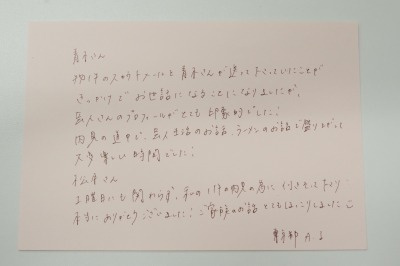 青木さん
物件のスカウトメールを青木さんが送って下さっていたことが
きっかけでお世話になることになりましたが、
巨人さんのプロフィールがとても印象的でした!
内見の道中で、巨人生活のお話、ラーメンのお話で盛り上がって
大変楽しい時間でした!
松本さん
土曜日にも関わらず、私の1件の内見の為に付き合って下さり
本当にありがとうございました!ご家族のお話とてもほっこりしました
東京都 A.S